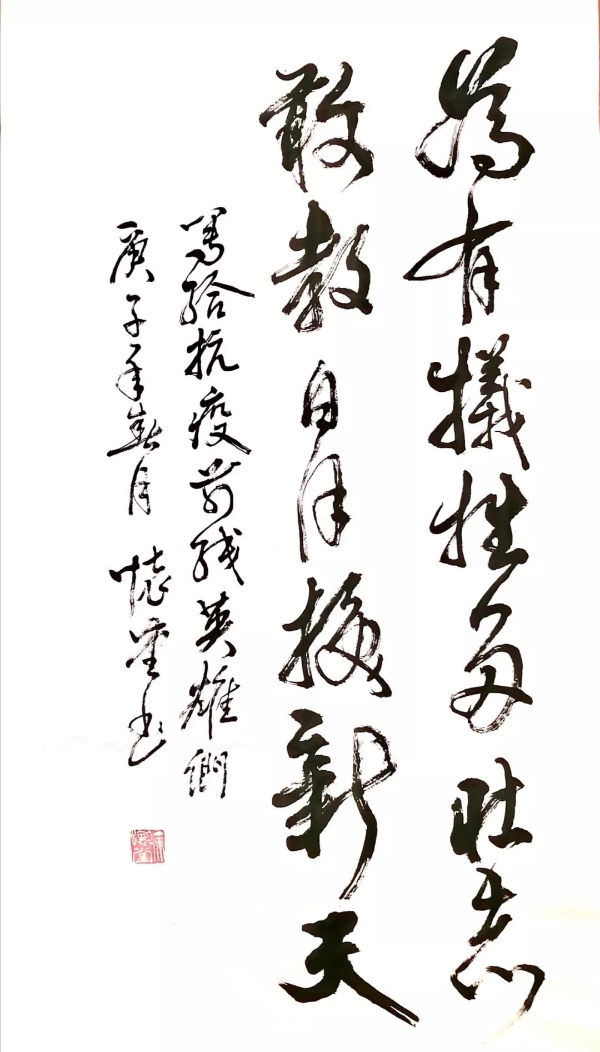 为有犠牲多壮志
敢教日月换新天
写给抗疫前线英雄们
庚子年春月 怀堂书